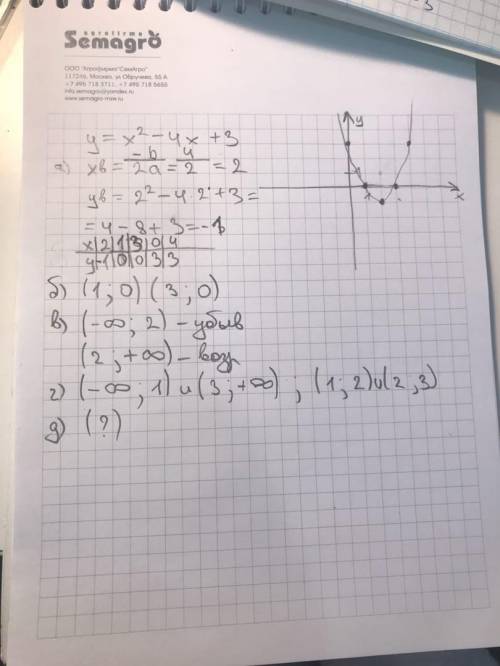 агрофирма
Semagro
ООО "Агрофирма"СемАгро"
117246, Москва, ул Обручева, 55 А
+7 495 718 3711, +7 495 718 5655
info.semagro@yandex.ru
www.semagro-msk.ru
y = x² - 4x + 3
а) xв = -b/2a = 4/2 = 2
yв = 2² - 4 · 2 + 3 =
= 4 - 8 + 3 = -1
x | 2 | 1 | 3 | 0 | 4
y | -1 | 0 | 0 | 3 | 3
б) (1; 0) (3; 0)
в) (-∞; 2) - убыв
(2; +∞) - возр
г) (-∞; 1) и (3; +∞) ; (1; 2) и (2, 3)
д) (?)
y
x
1